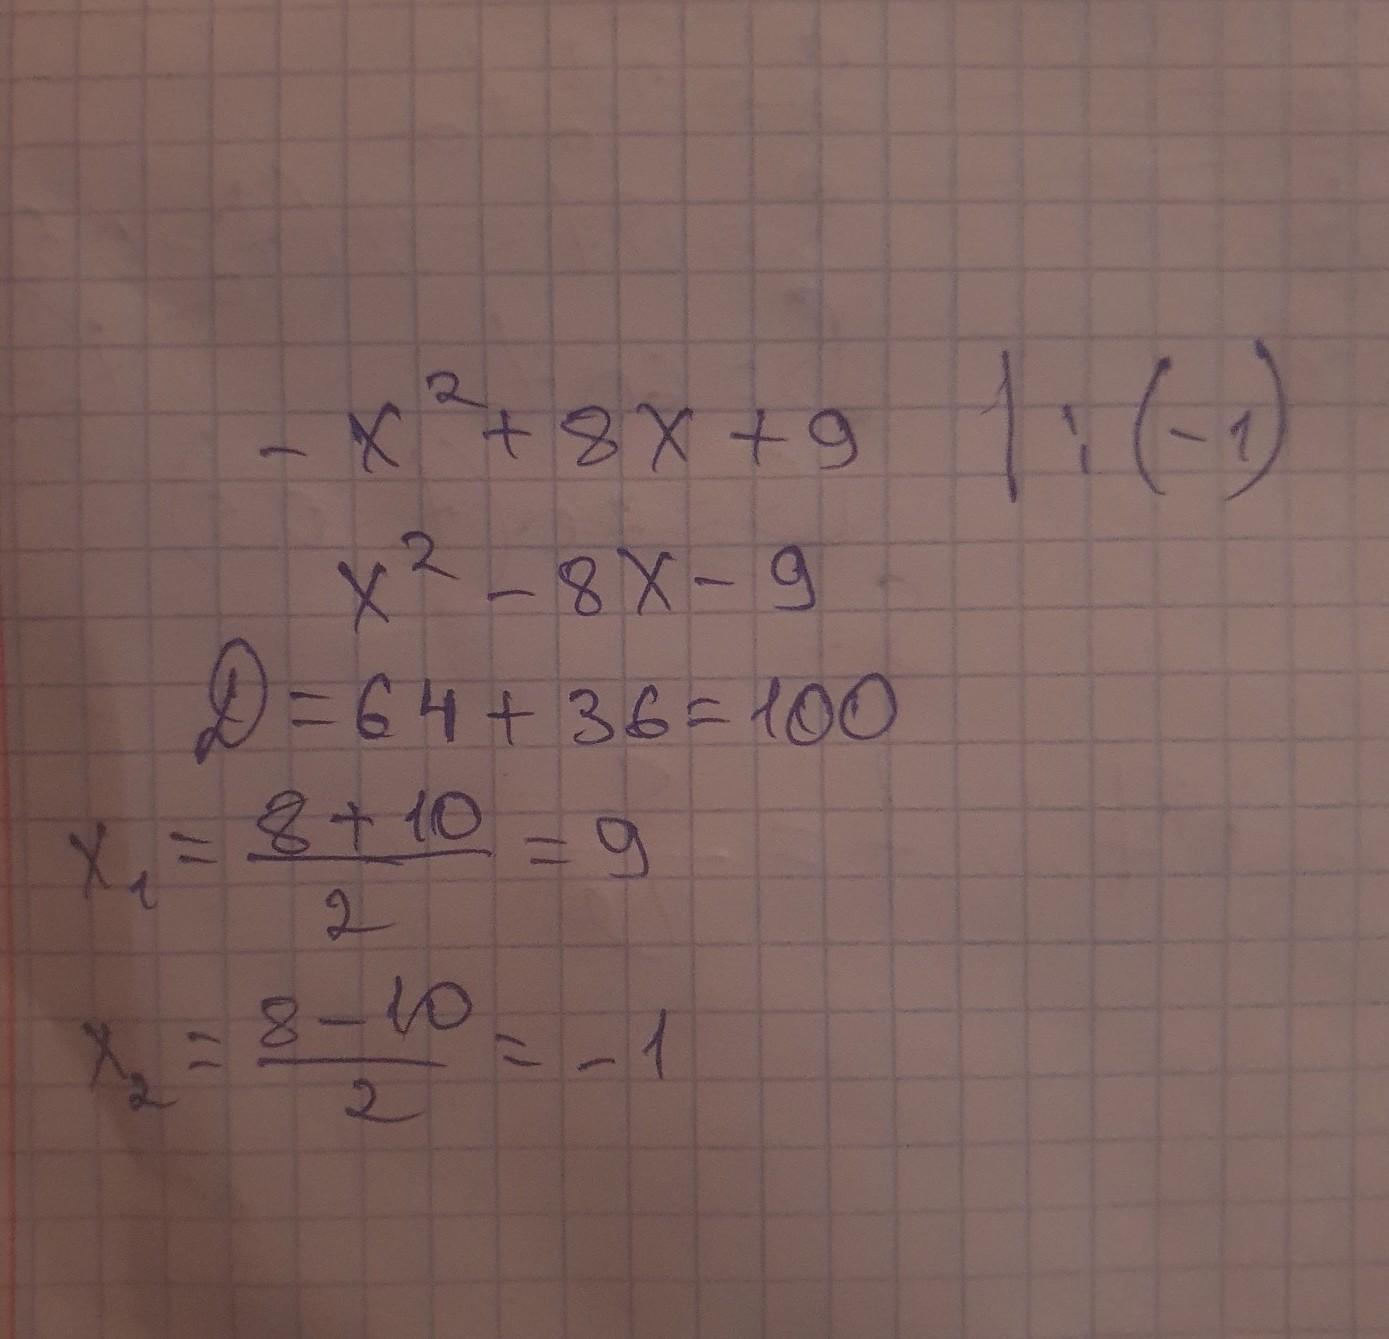 - x² + 8x + 9 | : (-1)
x² - 8x - 9
D = 64 + 36 = 100
x₁ = (8 + 10)/2 = 9
x₂ = (8 - 10)/2 = -1